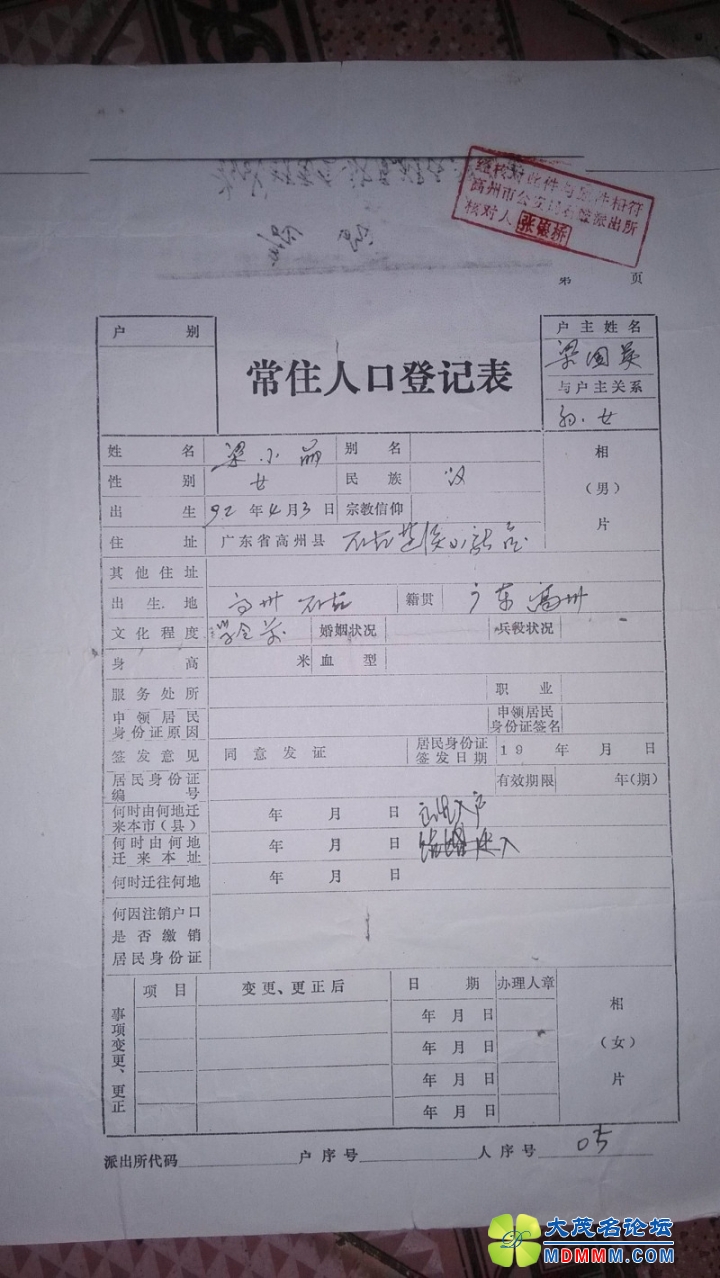 经核对此件与原件相符
高州市公安局石鼓派出所
核对人 张银桥
第 页
户 别
常住人口登记表
户主姓名
梁国英
与户主关系
孙女
姓 名 梁小丽 别 名
性 别 女 民 族 汉
出 生 92 年 4 月 3 日 宗教信仰
住 址 广东省高州县 石鼓
相
(男)
片
其他住址
出 生 地 高州 石鼓 籍贯 广东高州
文化程度 学令前 婚姻状况 兵役状况
身 高 米 血 型
服务处所 职 业
申领居民身份证原因 申领居民身份证签名
签发意见 同意发证 居民身份证签发日期 19 年 月 日
居民身份证编 号 有效期限 年(期)
何时由何地迁来本市(县) 年 月 日 入户
何时由何地迁来本址 年 月 日 迁入
何时迁往何地 年 月 日
何因注销户口
是否缴销
居民身份证
事项变更、更正
项 目 变更、更正后 日 期 办理人章
年 月 日
年 月 日
年 月 日
年 月 日
相
(女)
片
派出所代码 户序号 人序号 05
大茂名论坛
MDMMM.COM